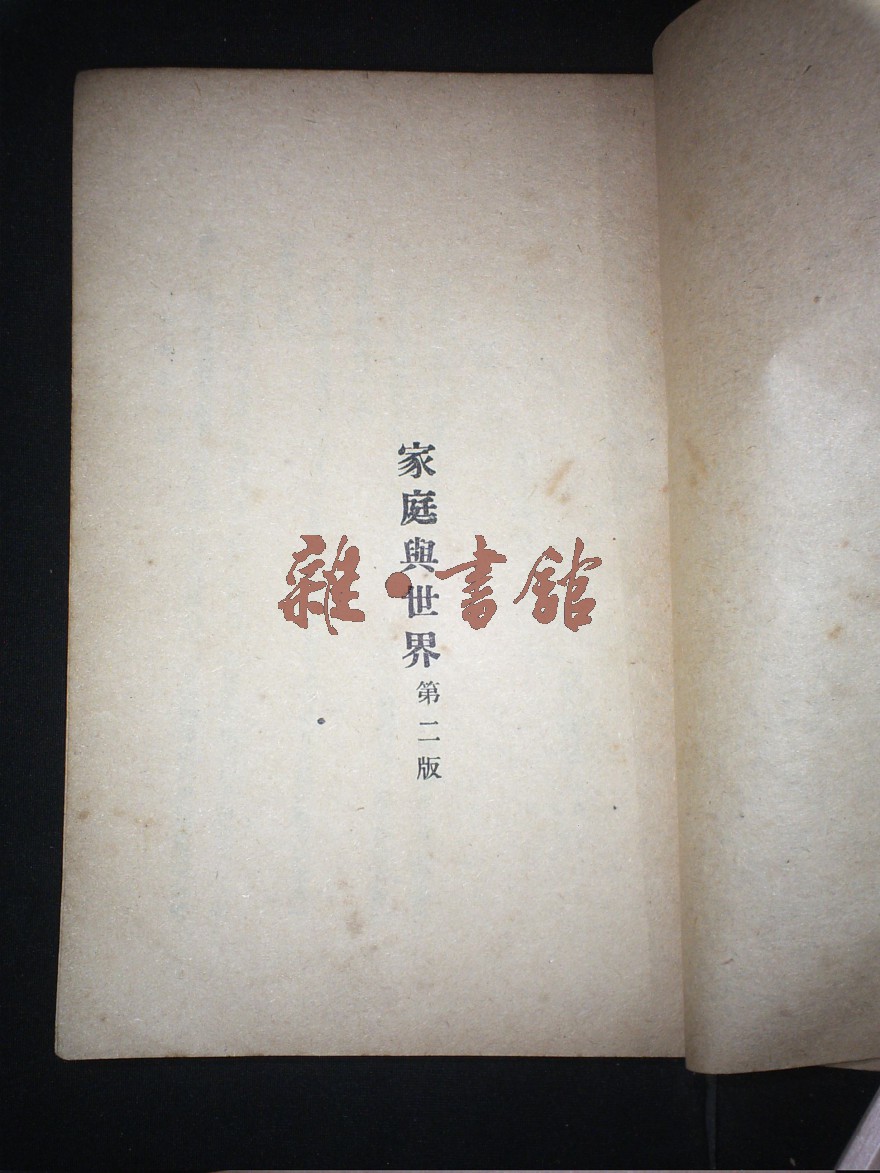 家庭與世界第二版
雜·書館